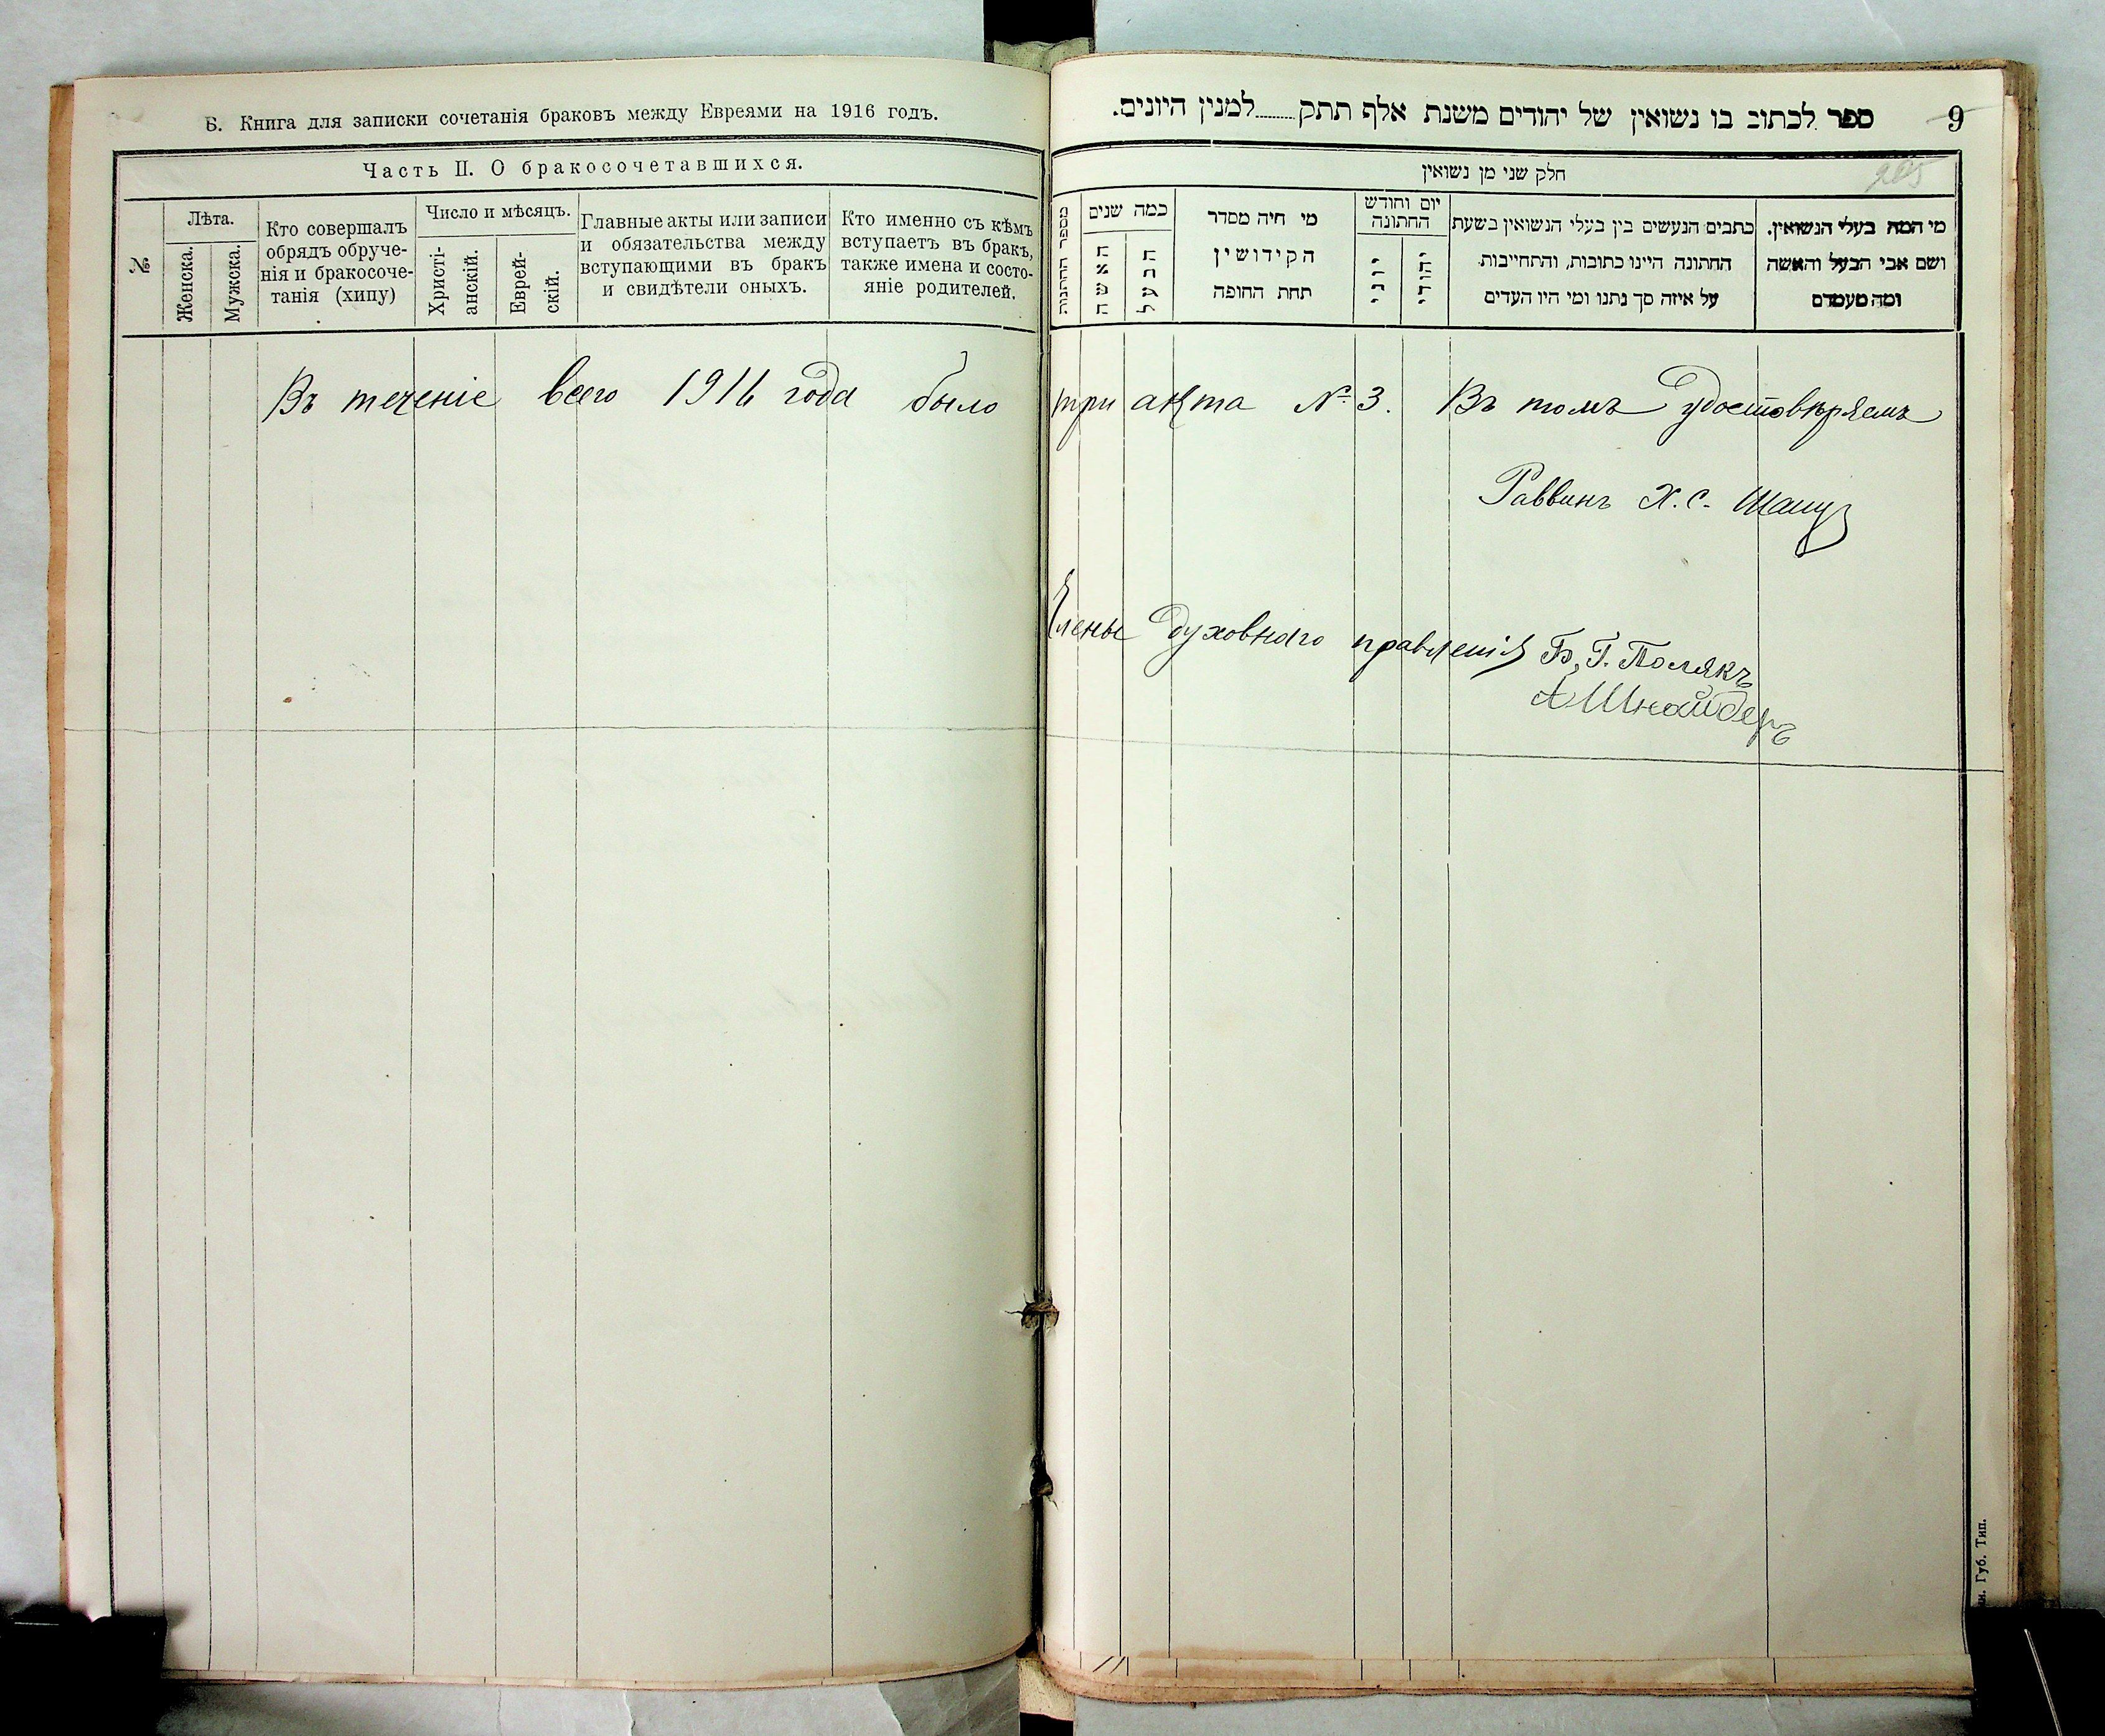 Б. Книга для записки сочетанія браковъ между Евреями на 1916 годъ.
Часть II. О бракосочетавшихся.
№
Лѣта.
Женска.
Мужска.
Кто совершалъ
обрядъ обруче-
нія и бракосоче-
танія (хипу)
Число и мѣсяцъ.
Христі-
анскій.
Еврей-
скій.
Главные акты или записи
и обязательства между
вступающими въ бракъ
и свидѣтели оныхъ.
Кто именно съ кѣмъ
вступаетъ въ бракъ,
также имена и состо-
яніе родителей.
ספר לכתוב בו נשואין של יהודים משנת אלף תתק........למנין היונים.
9
205
חלק שני מן נשואין
מספר החתונות
כמה שנים
האשה
הבעל
מי היה מסדר
הקידושין
תחת החופה
יום וחודש
החתונה
יוני
יהודי
כתבים הנעשים בין בעלי הנשואין בשעת
החתונה היינו כתובות, והתחייבות
על איזה סך נתנו ומי היו העדים
מי המה בעלי הנשואין.
ושם אבי הבעל והאשה
ומה מעמדם
Въ теченіе всего 1916 года было три акта № 3. Въ томъ удостовѣряемъ
Раввинъ Х. С.
Члены духовнаго правленія Б. Г. Полякъ
А Шнайдеръ
Губ. Тип.